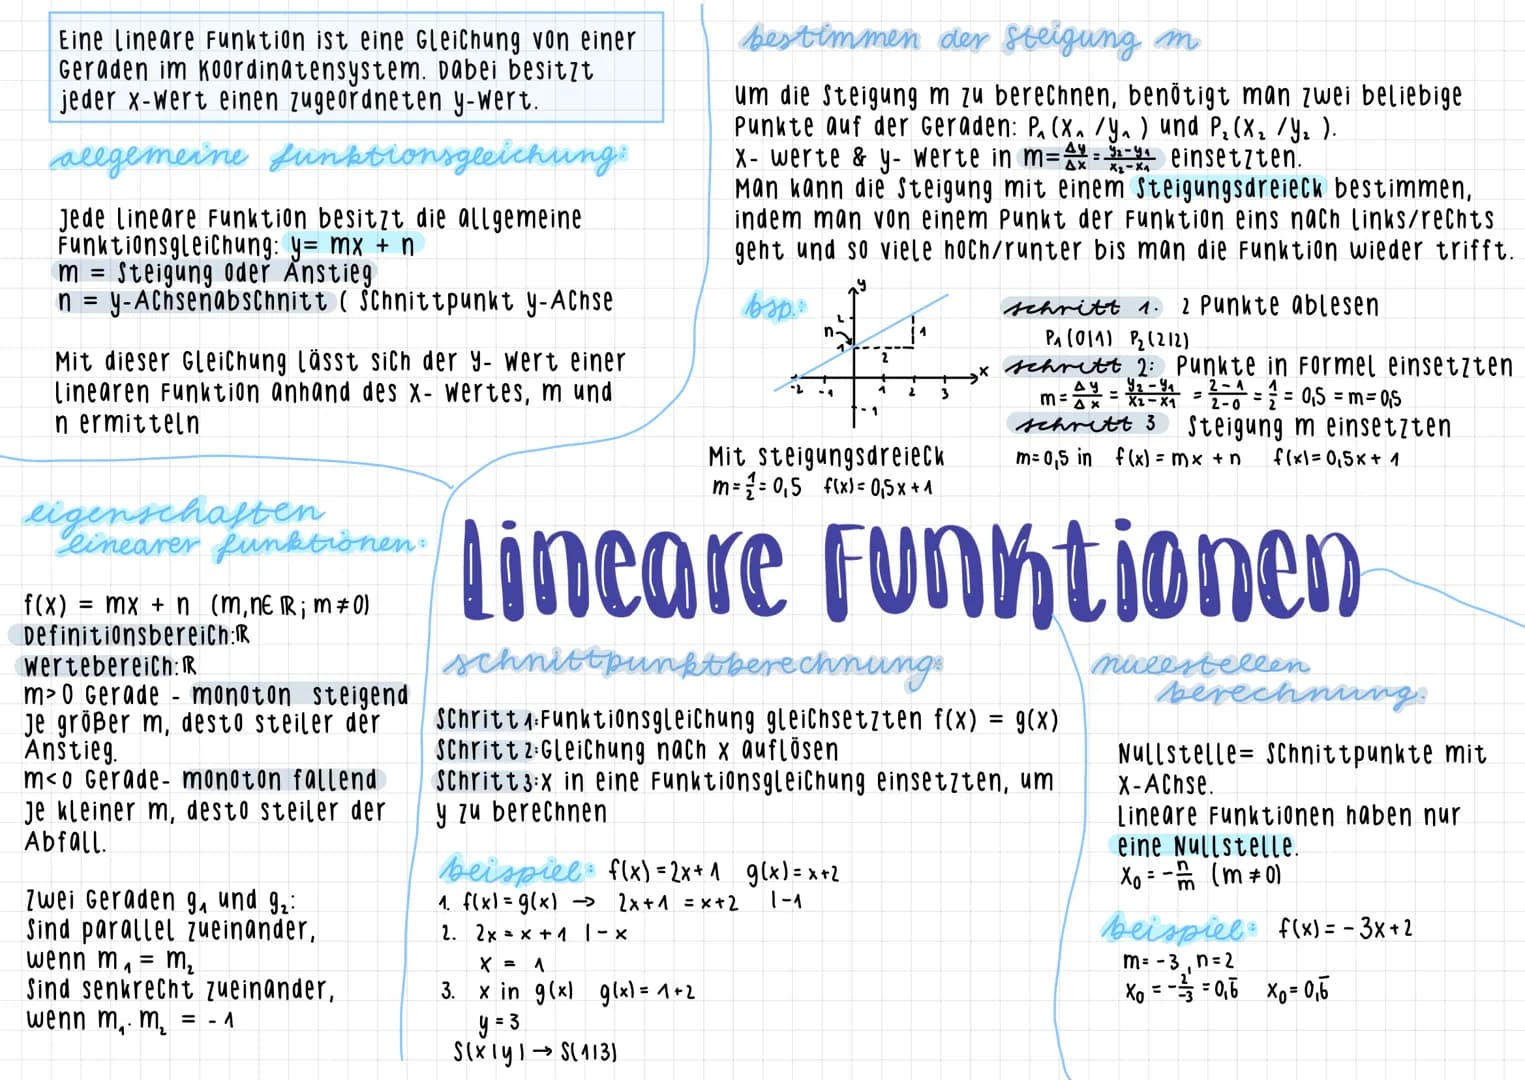 Eine lineare Funktion ist eine Gleichung von einer
Geraden im Koordinatensystem. Dabei besitzt
jeder x-Wert einen zugeordneten y-Wert.
allgemeine funktionsgleichung:
Jede lineare Funktion besitzt die allgemeine
Funktionsgleichung: y= mx + n
m = Steigung oder Anstieg
n = y-Achsenabschnitt ( Schnittpunkt y-Achse
Mit dieser Gleichung lässt sich der y- Wert einer
linearen Funktion anhand des x- Wertes, m und
n ermitteln
bestimmen der Steigung m
um die Steigung m zu berechnen, benötigt man zwei beliebige
Punkte auf der Geraden: P₁ (x₁ /y₁ ) und P₂ (x₂ /y₂ ).
x- werte & y- Werte in m= Δy/Δx = y₂-y₁/x₂-x₁ einsetzten.
Man kann die Steigung mit einem Steigungsdreieck bestimmen,
indem man von einem Punkt der Funktion eins nach links/rechts
geht und so viele hoch/runter bis man die Funktion wieder trifft.
bsp.:
y
2
n
1
1
2
x
-2 -1 1 2 3
-1
Mit steigungsdreieck
m = 1/2 = 0,5 f(x) = 0,5x + 1
schritt 1. 2 Punkte ablesen
P₁ (0|1) P₂ (2|2)
schritt 2: Punkte in Formel einsetzten
m = Δy/Δx = y₂-y₁/x₂-x₁ = 2-1/2-0 = 1/2 = 0,5 = m = 0,5
schritt 3 Steigung m einsetzten
m = 0,5 in f(x) = mx + n f(x) = 0,5x + 1
Lineare Funktionen
eigenschaften
linearer funktionen:
f(x) = mx + n (m,n∈ ℝ; m ≠ 0)
Definitionsbereich:ℝ
Wertebereich:ℝ
m> 0 Gerade - monoton steigend
Je größer m, desto steiler der
Anstieg.
m<0 Gerade- monoton fallend
Je kleiner m, desto steiler der
Abfall.
Zwei Geraden g₁ und g₂:
Sind parallel zueinander,
wenn m₁ = m₂
Sind senkrecht zueinander,
wenn m₁ · m₂ = - 1
schnittpunktberechnung:
Schritt 1:Funktionsgleichung gleichsetzten f(x) = g(x)
Schritt 2:Gleichung nach x auflösen
Schritt 3:x in eine Funktionsgleichung einsetzten, um
y zu berechnen
beispiel: f(x) = 2x+1 g(x) = x+2
1. f(x) = g(x) → 2x+1 = x+2 |-1
2. 2x = x + 1 |- x
x = 1
3. x in g(x) g(x) = 1+2
y = 3
S(x|y) → S(1|3)
nullstellen
berechnung:
Nullstelle= Schnittpunkte mit
x-Achse.
Lineare Funktionen haben nur
eine Nullstelle.
x₀ = - n/m (m ≠ 0)
beispiel: f(x) = - 3x+2
m= -3, n=2
x₀ = - 2/-3 = 0,6̅ x₀ = 0,6̅